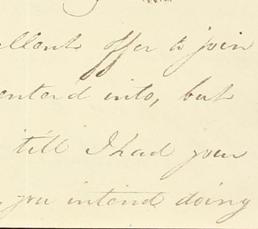 ellent offer to join
entered into, but
till I had your
you intend doing